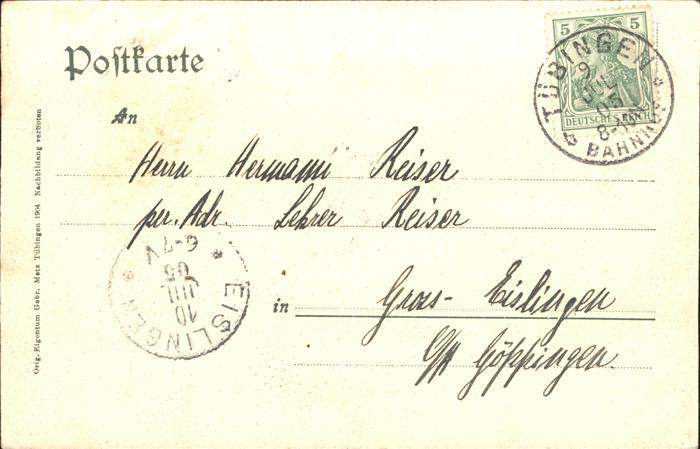 Postkarte
5 5
DEUTSCHES REICH
TÜBINGEN
9
JUL
05
BAHNHOF
An
Herrn Hermann Reiser
per. Adr. Lehrer Reiser
in Gross-Eislingen
O/A Göppingen.
EISLINGEN
10
JUL
05
6-7V
Orig.-Eigentum Gebr. Metz Tübingen 1904 Nachbildung verboten